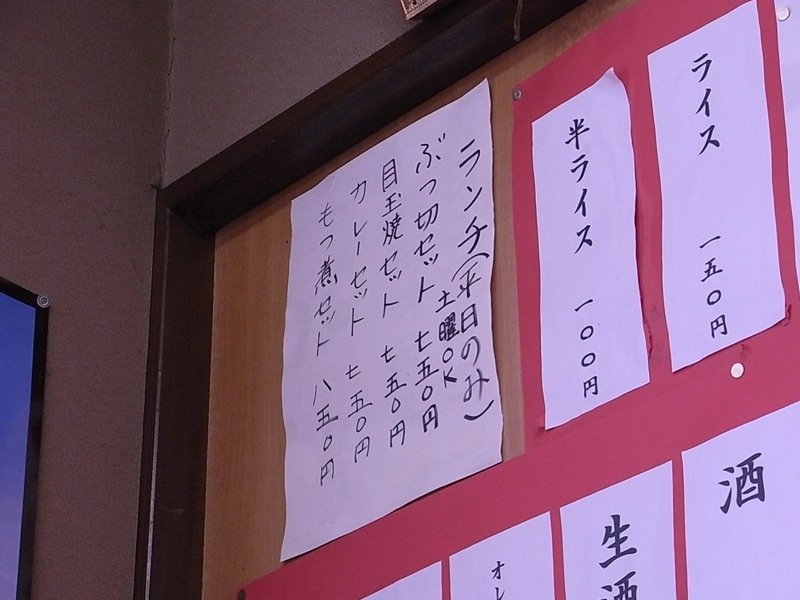 ライス 一五〇円
半ライス 一〇〇円
ランチ(平日のみ)
土曜OK
ぶつ切セット 七五〇円
目玉焼セット 七五〇円
カレーセット 七五〇円
もつ煮セット 八五〇円
酒
生酒
オレ